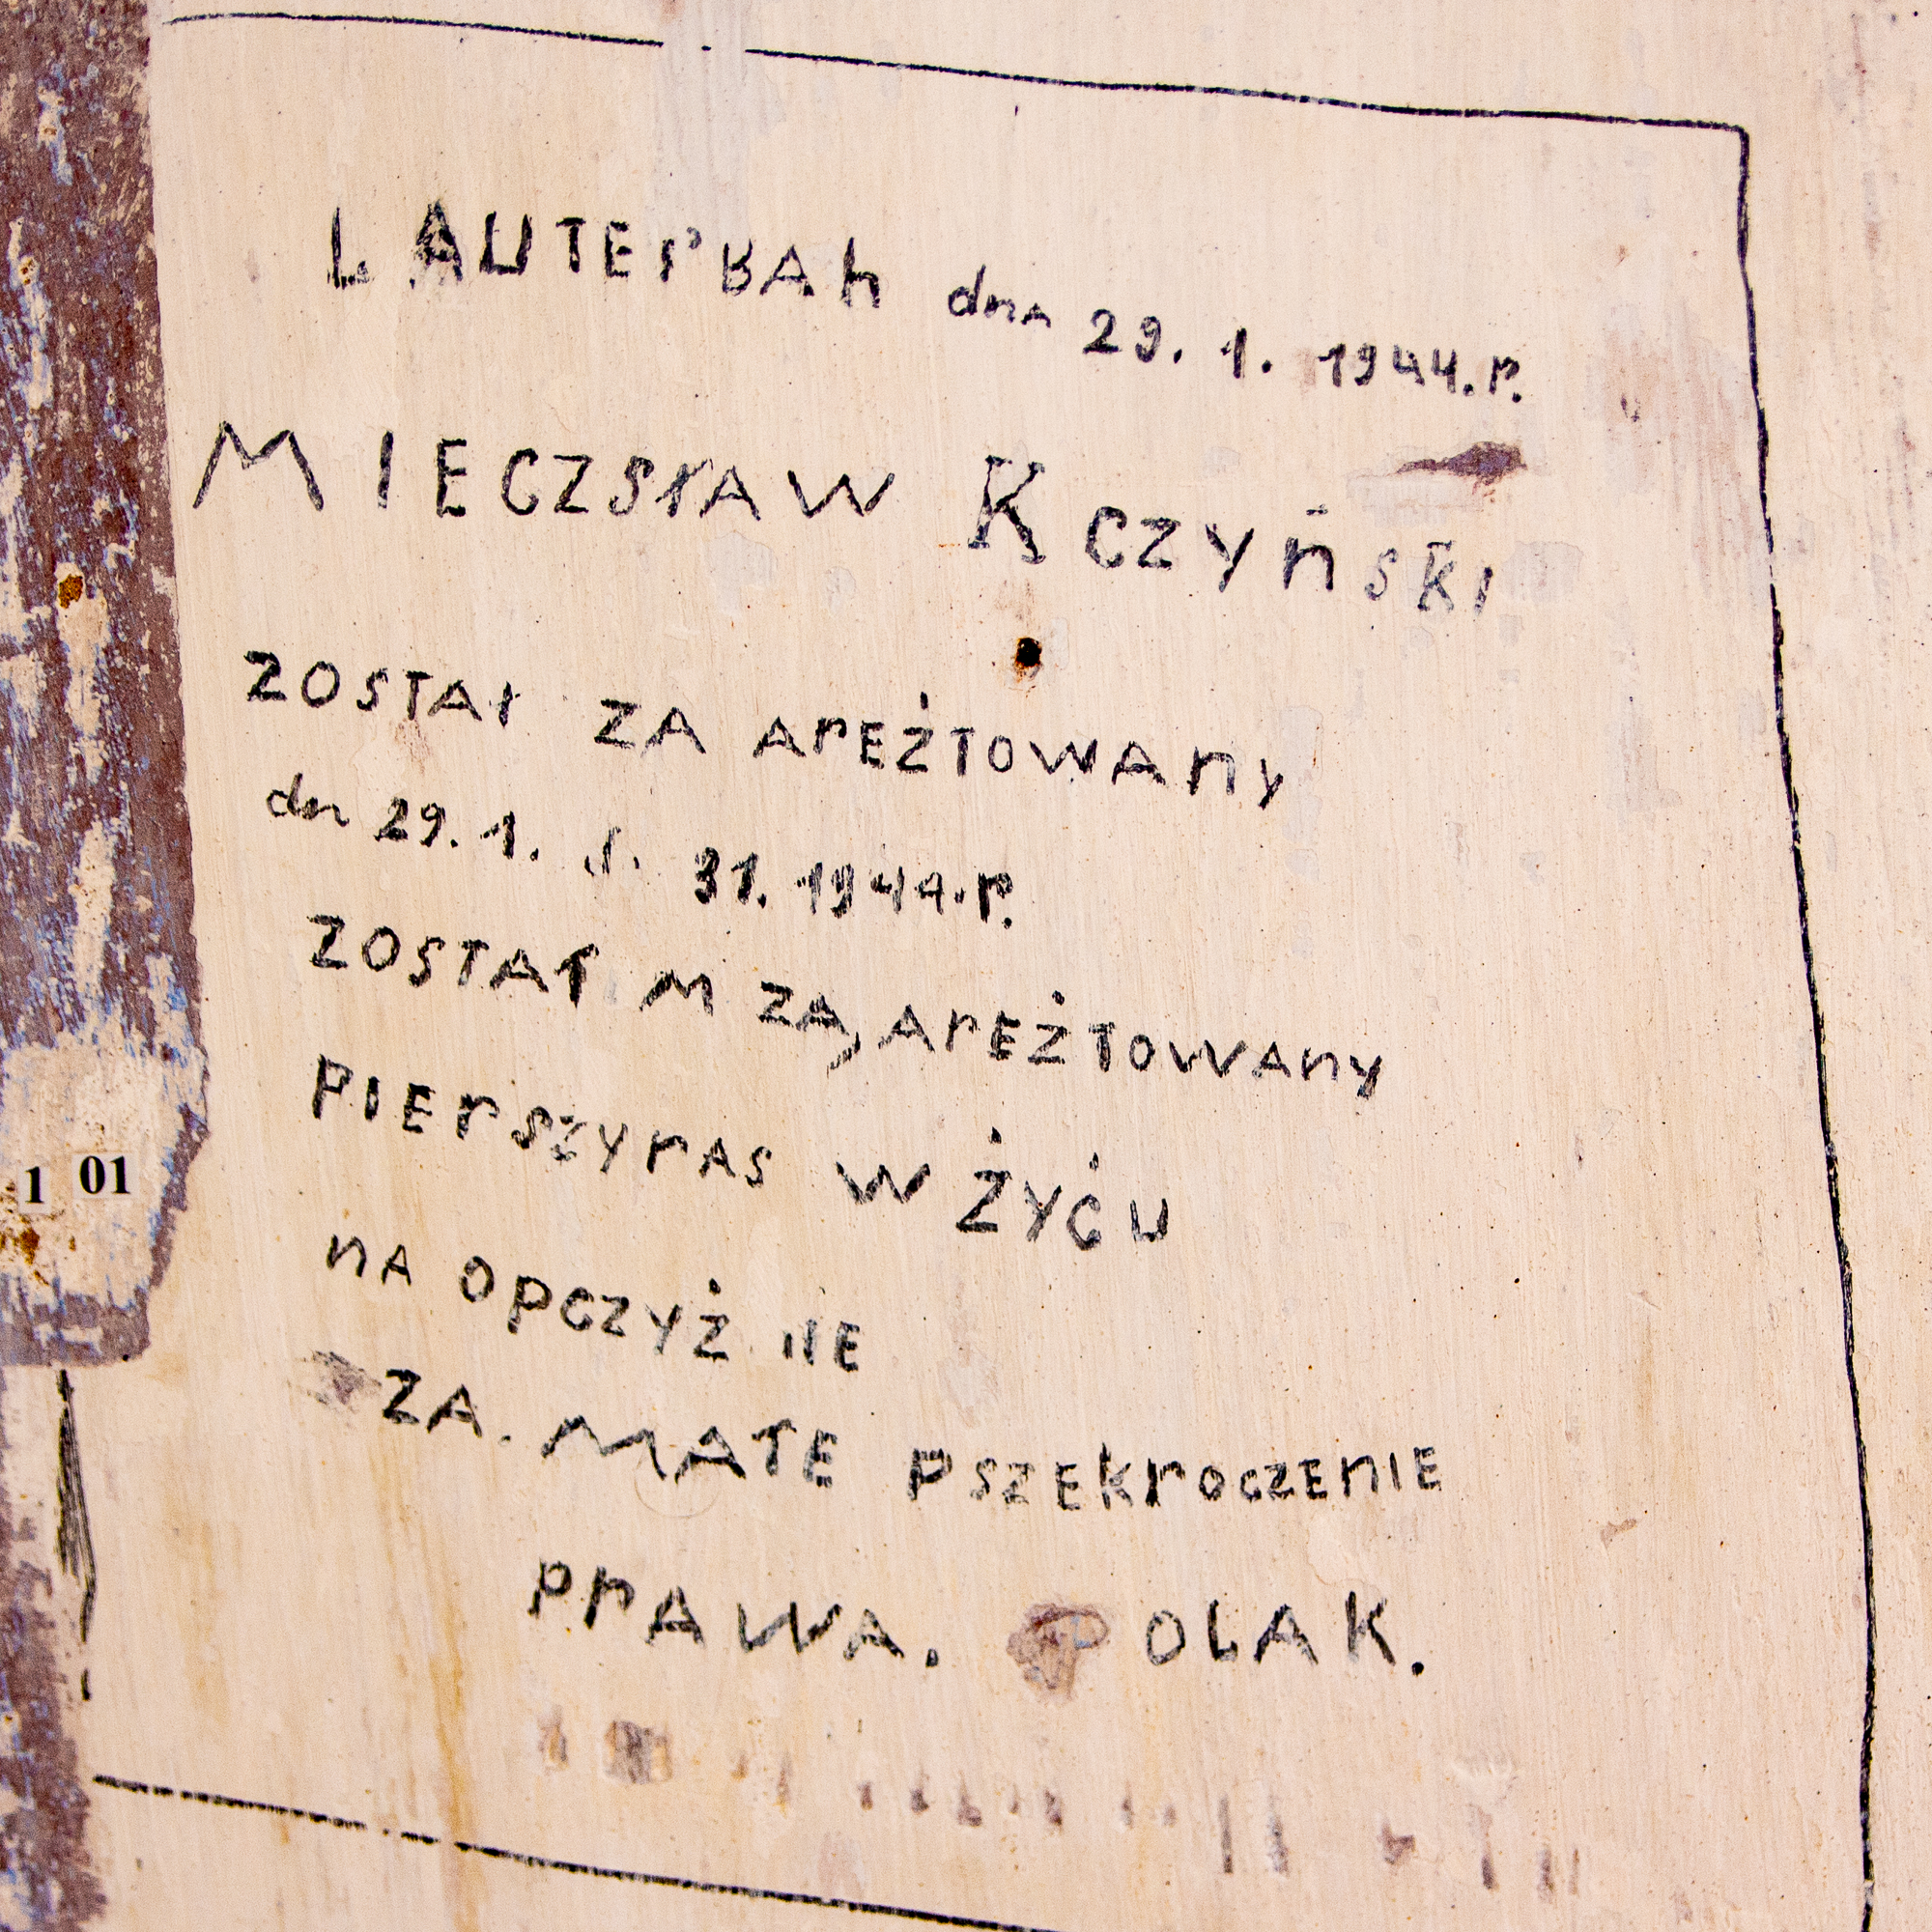 LAUTErBAh dna 29. 1. 1944.r.
MIECZSłAW KCZYńSKI
ZOSTAł ZA ArEŻTOWAny
dn 29. 1. 31. 1944.r.
ZOSTAł M ZA, ArEŻTOWAny
PIErSZYrAS W ŻYĆU
nA OPCZYŻnE
ZA. MAŁE PSZEKrOCZEnIE
PrAWA. POLAK.
1 01